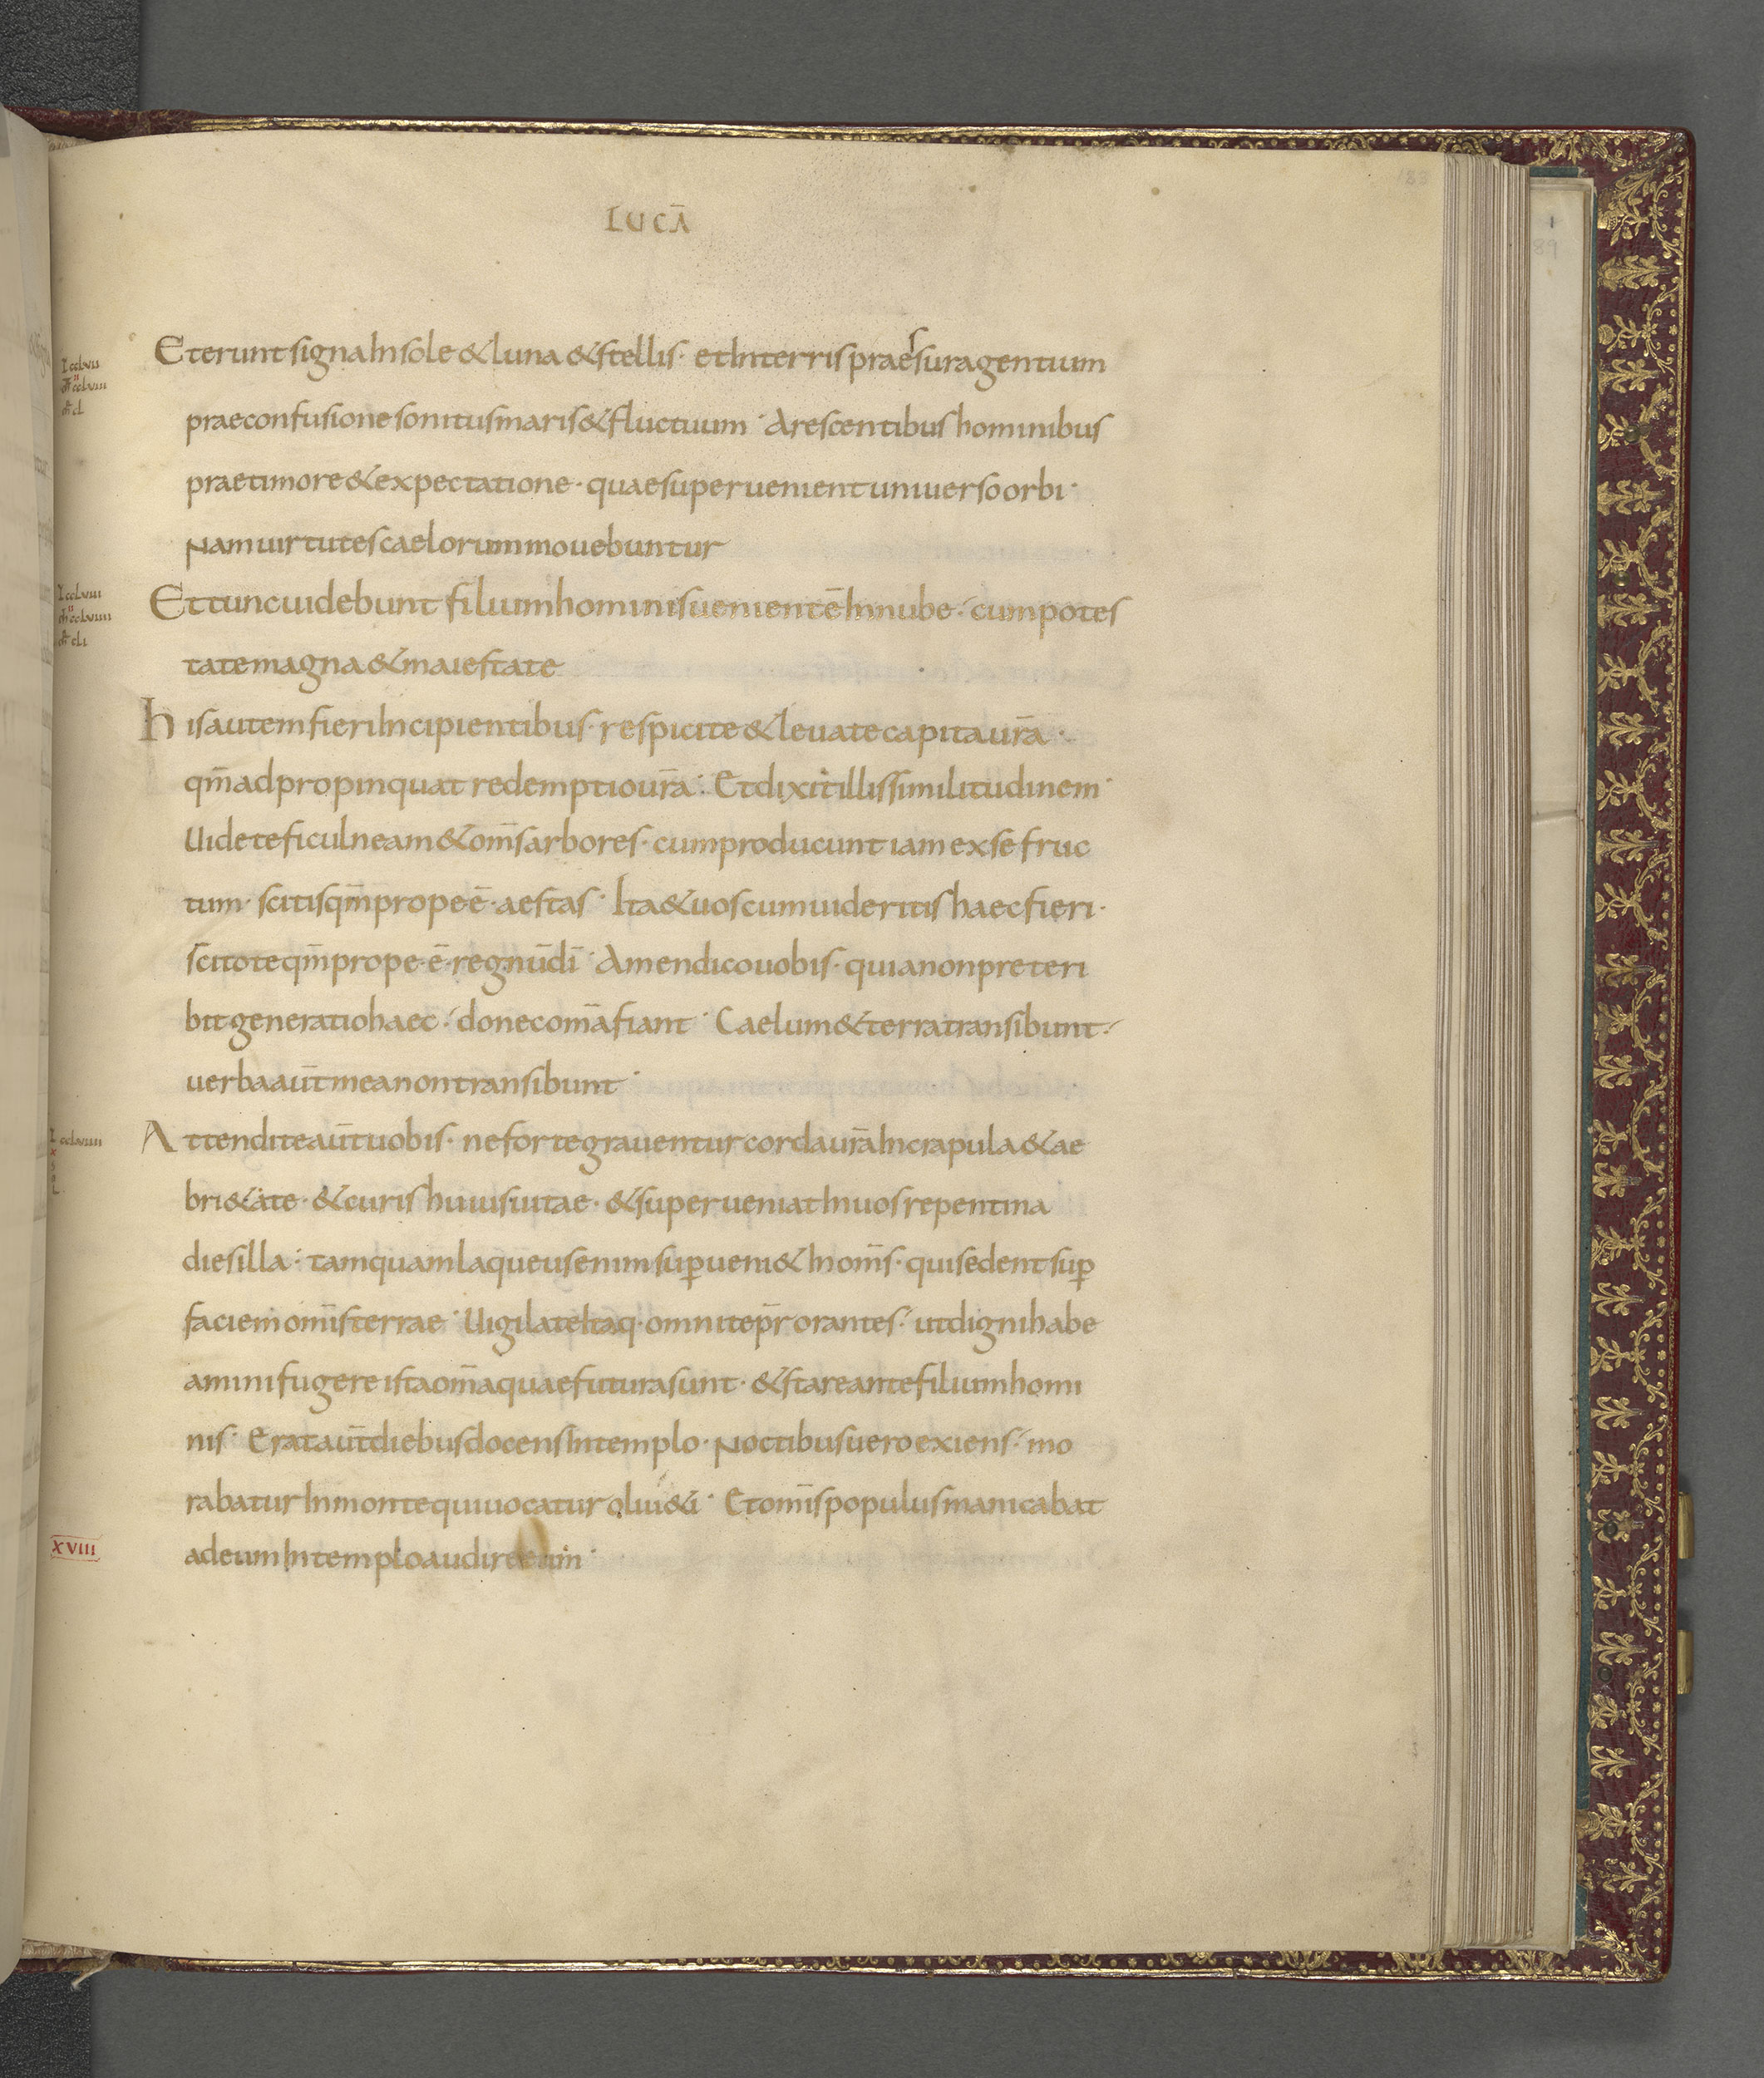 LUCĀ
183
Et erunt signa In sole & luna & stellis · et In terris praesura gentium
prae confusione sonitus maris & fluctuum · Arescentibus hominibus
prae timore & expectatione · quae superuenient uniuerso orbi ·
Nam uirtutes caelorum mouebuntur
Et tunc uidebunt filium hominis uenientē In nube · cum potes
tate magna & maiestate
his autem fieri Incipientibus · respicite & leuate capita ur̄a ·
qm̄ adpropinquat redemptio ur̄a · Et dixit illis similitudinem ·
Uidete ficulneam & om̄s arbores · cum producunt iam ex se fruc
tum · scitis qm̄ prope ē · aestas · Ita & uos cum uideritis haec fieri ·
scitote qm̄ prope ē · regnū dī · Amen dico uobis · quia non preteri
bit generatio haec · donec om̄a fiant · Caelum & terra transibunt ·
uerba aūt mea non transibunt ·
Attendite aūt uobis · ne forte grauentur corda ur̄a In crapula & ae
bri&ate · & curis huius uitae · & superueniat In uos repentina
dies illa · tamquam laqueus enim suꝑueni& In om̄s · qui sedent suꝑ
faciem om̄s terrae · Uigilate Itaq · omni tep̄r orantes · ut digni habe
amini fugere ista om̄a quae futura sunt · & stare ante filium homi
nis · Erat aūt diebus docens In templo · Noctibus uero exiens · mo
rabatur In monte qui uocatur oliu&i · Et om̄is populus manicabat
XVIII
ad eum In templo audire eum ·
1
89